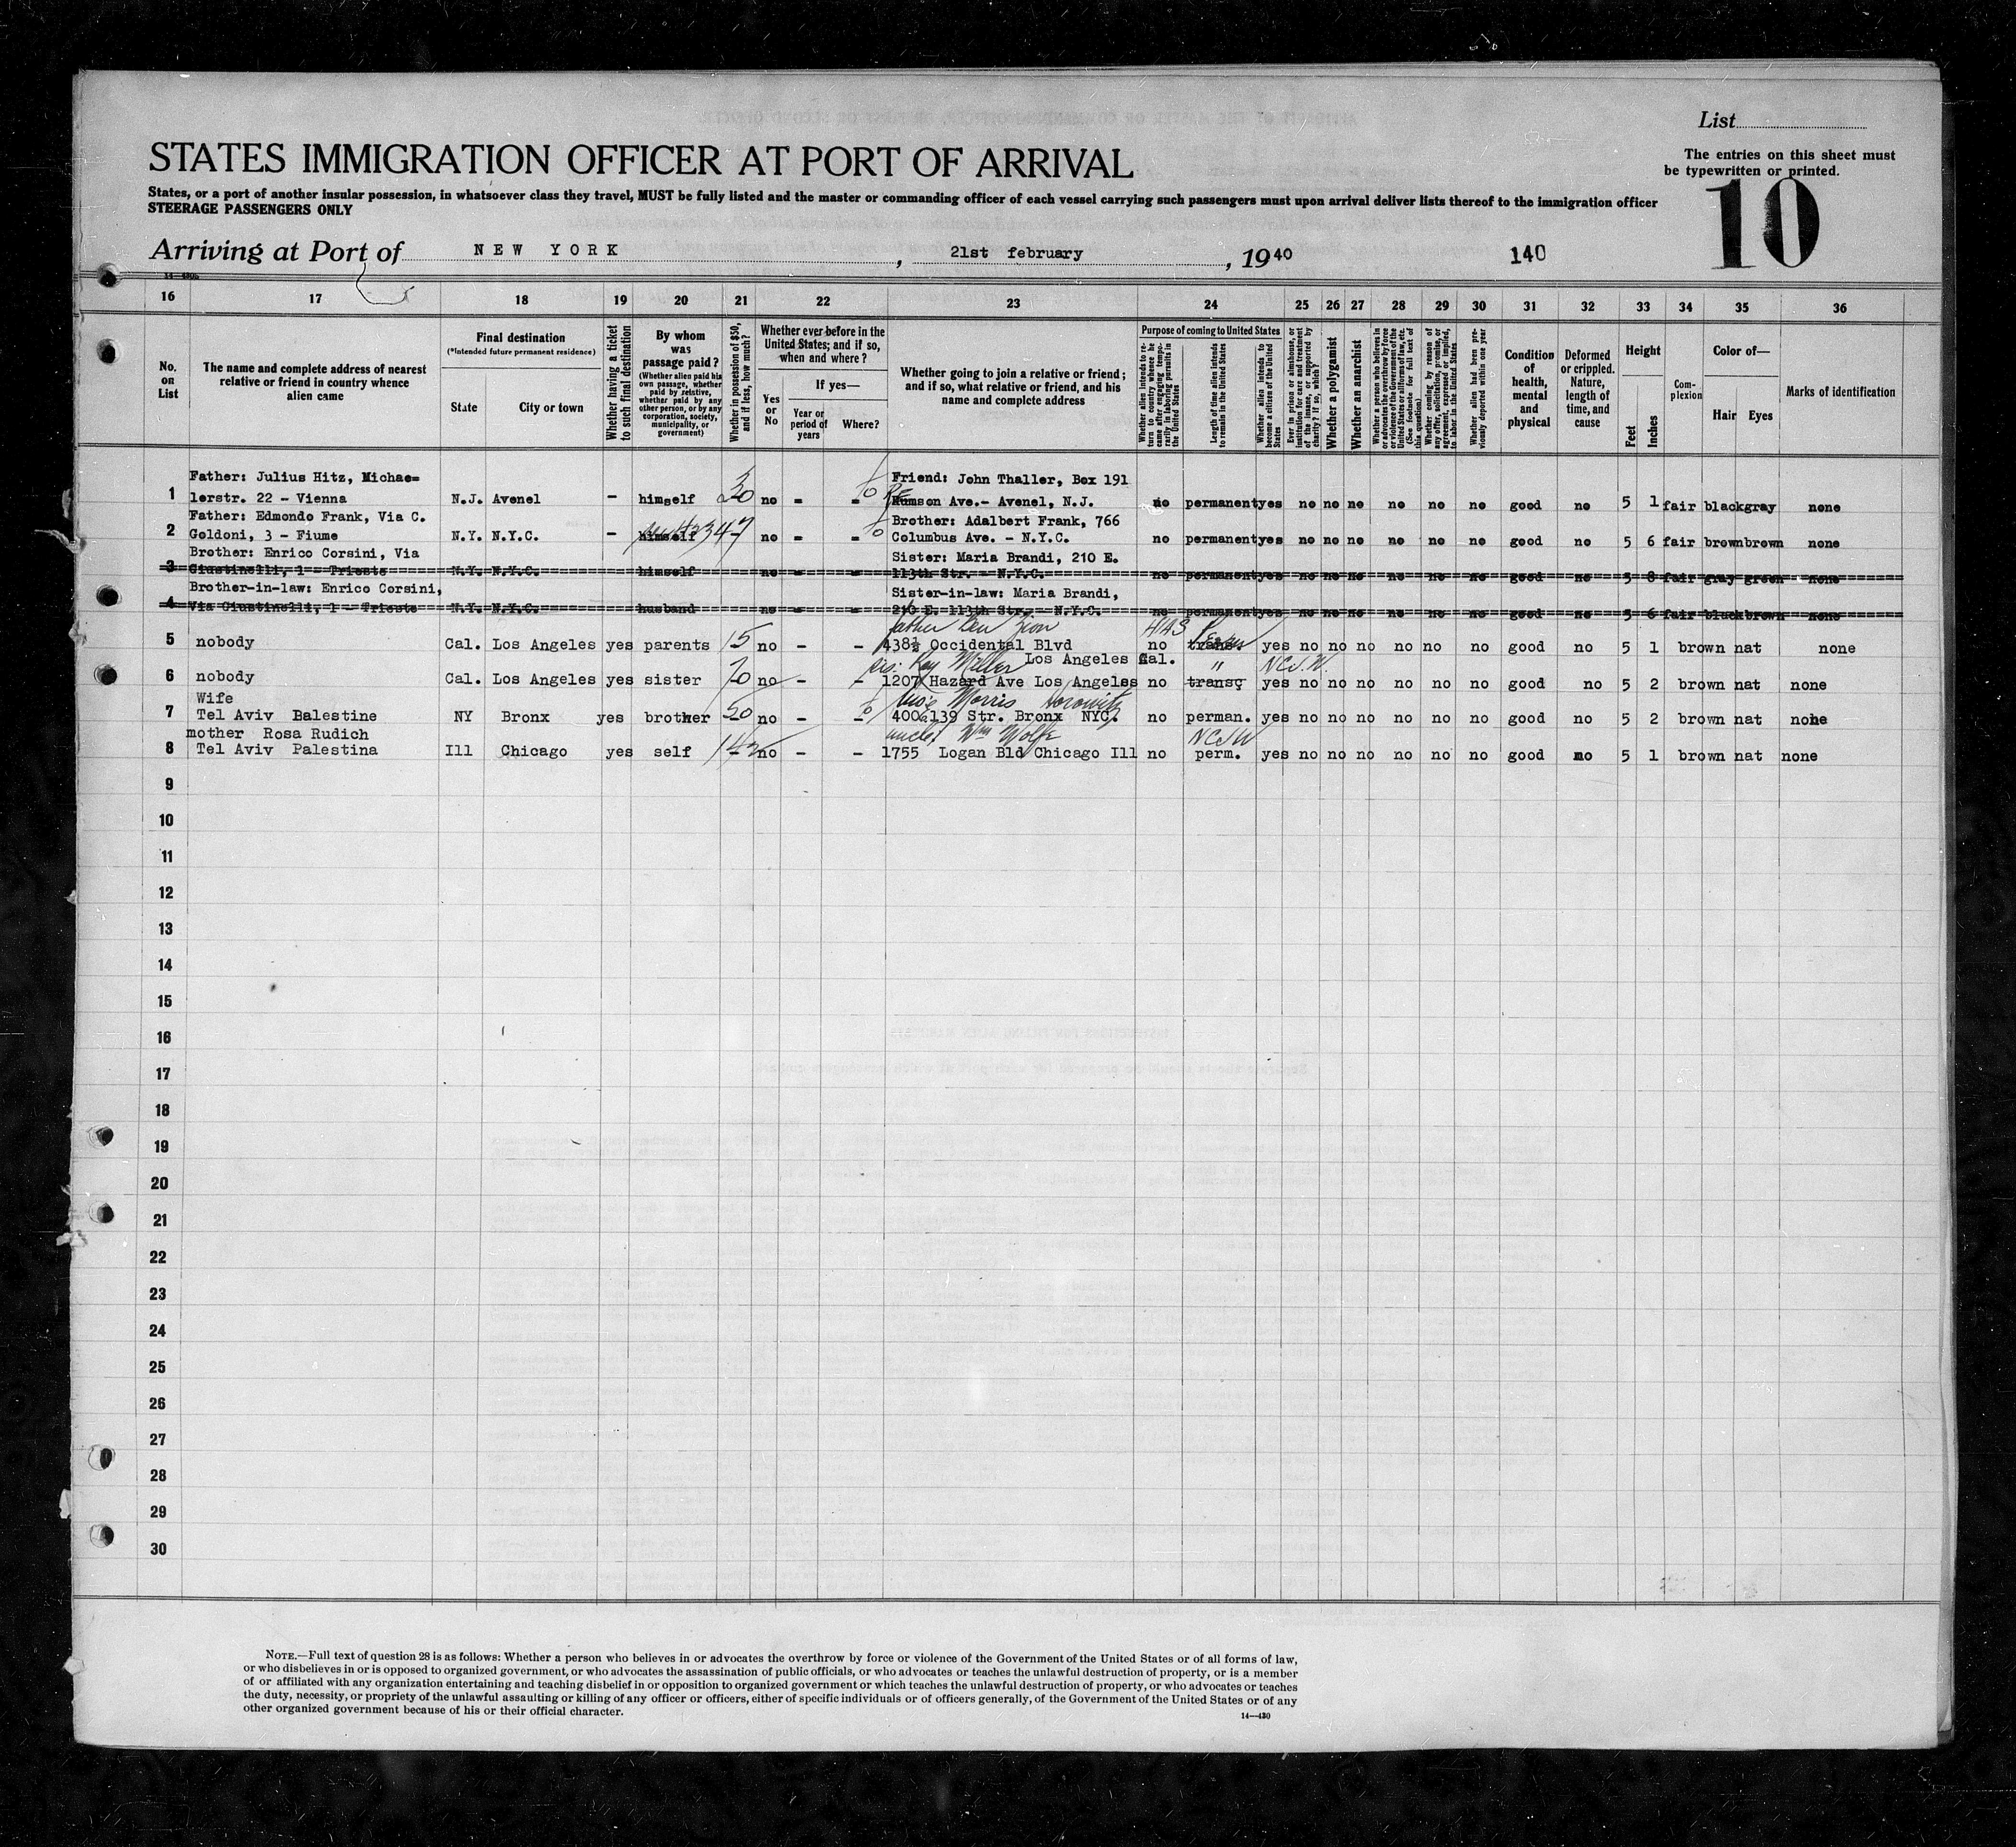 List
STATES IMMIGRATION OFFICER AT PORT OF ARRIVAL
The entries on this sheet must
be typewritten or printed.
States, or a port of another insular possession, in whatsoever class they travel, MUST be fully listed and the master or commanding officer of each vessel carrying such passengers must upon arrival deliver lists thereof to the immigration officer
STEERAGE PASSENGERS ONLY
10
Arriving at Port of NEW YORK, 21st february, 1940 140
14—430b
16 17 18 19 20 21 22 23 24 25 26 27 28 29 30 31 32 33 34 35 36
No. on List
The name and complete address of nearest relative or friend in country whence alien came
Final destination
(*Intended future permanent residence)
State
City or town
Whether having a ticket to such final destination
By whom was passage paid?
(Whether alien paid his own passage, whether paid by relative, whether paid by any other person, or by any corporation, society, municipality, or government)
Whether in possession of $50, and if less, how much?
Whether ever before in the United States; and if so, when and where?
Yes or No
If yes—
Year or period of years
Where?
Whether going to join a relative or friend; and if so, what relative or friend, and his name and complete address
Purpose of coming to United States
Whether alien intends to return to country whence he came after engaging temporarily in laboring pursuits in the United States
Length of time alien intends to remain in the United States
Whether alien intends to become a citizen of the United States
Ever in prison or almshouse, or institution for care and treatment of the insane, or supported by charity? If so, which?
Whether a polygamist
Whether an anarchist
Whether a person who believes in or advocates the overthrow by force or violence of the Government of the United States or all forms of law, etc. (See footnote for full text of this question)
Whether coming by reason of any offer, solicitation, promise, or agreement, expressed or implied, to labor in the United States
Whether alien had been previously deported within one year
Condition of health, mental and physical
Deformed or crippled. Nature, length of time, and cause
Height
Feet
Inches
Complexion
Color of—
Hair Eyes
Marks of identification
Father: Julius Hitz, Michae= Friend: John Thaller, Box 191
1 lerstr. 22 - Vienna N.J. Avenel - himself 30 no - - Rumson Ave.- Avenel, N.J. no permanent yes no no no no no no good no 5 1 fair black gray none
Father: Edmondo Frank, Via C. Brother: Adalbert Frank, 766
2 Goldoni, 3 - Fiume N.Y. N.Y.C. - himself no - - Columbus Ave. - N.Y.C. no permanent yes no no no no no no good no 5 6 fair brown brown none
Brother: Enrico Corsini, Via Sister: Maria Brandi, 210 E.
3 Giustinelli, 1 - Trieste N.Y. N.Y.C. himself no - - 113th Str. - N.Y.C. no permanent yes no no no no no no good no 5 8 fair gray green none
Brother-in-law: Enrico Corsini, Sister-in-law: Maria Brandi,
4 Via Giustinelli, 1 - Trieste N.Y. N.Y.C. husband no - - 210 E. 113th Str. - N.Y.C. no permanent yes no no no no no no good no 5 6 fair black brown none
father Ben Zion HIAS
5 nobody Cal. Los Angeles yes parents 15 no - 438½ Occidental Blvd no trans yes no no no no no no good no 5 1 brown nat none
sis: Kay Miller Los Angeles Cal. " N.C.J.W.
6 nobody Cal. Los Angeles yes sister 70 no - - 1207 Hazard Ave Los Angeles no transç yes no no no no no no good no 5 2 brown nat none
Wife Morris Horowitz
7 Tel Aviv Balestine NY Bronx yes brother 50 no - - 400 139 Str. Bronx NYC. no perman. yes no no no no no no good no 5 2 brown nat none
mother Rosa Rudich uncle Wm Wolfe NCJW
8 Tel Aviv Palestina Ill Chicago yes self 142 no - - 1755 Logan Bld Chicago Ill no perm. yes no no no no no no good no 5 1 brown nat none
9
10
11
12
13
14
15
16
17
18
19
20
21
22
23
24
25
26
27
28
29
30
NOTE.—Full text of question 28 is as follows: Whether a person who believes in or advocates the overthrow by force or violence of the Government of the United States or of all forms of law,
or who disbelieves in or is opposed to organized government, or who advocates the assassination of public officials, or who advocates or teaches the unlawful destruction of property, or is a member
of or affiliated with any organization entertaining and teaching disbelief in or opposition to organized government or which teaches the unlawful destruction of property, or who advocates or teaches
the duty, necessity, or propriety of the unlawful assaulting or killing of any officer or officers, either of specific individuals or of officers generally, of the Government of the United States or of any
other organized government because of his or their official character.
14—430